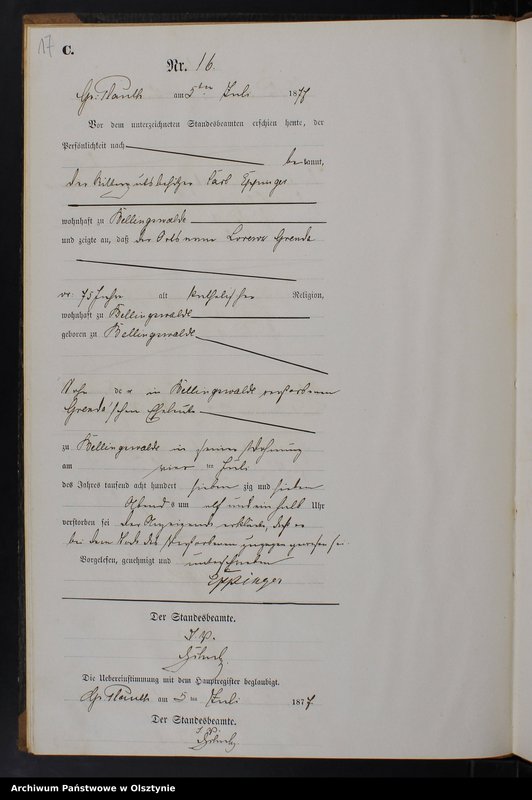 17
C.
Nr. 16.
Gr. Plauth am 5ten Juli 1877
Vor dem unterzeichneten Standesbeamten erschien heute, der
Persönlichkeit nach
bekannt,
der Rittergutsbesitzer Carl Eppinger
wohnhaft zu Bellingswalde
und zeigte an, daß der Ortsarme Lorenz Grenda
75 Jahr alt katholischer Religion,
wohnhaft zu Bellingswalde
geboren zu Bellingswalde
Sohn der in Bellingswalde verstorbenen
Grenda'schen Eheleute
zu Bellingswalde in seiner Wohnung
am vier ten Juli
des Jahres tausend acht hundert sieben zig und sieben
Abends um elf und ein halb Uhr
verstorben sei der Anzeigende erklärte, daß er
bei dem Tode des Verstorbenen zugegen gewesen sei
Vorgelesen, genehmigt und unterschrieben
Eppinger
Der Standesbeamte.
I. V.
Die Uebereinstimmung mit dem Hauptregister beglaubigt.
Gr. Plauth am 5 ten Juli 1877
Der Standesbeamte.
Archiwum Państwowe w Olsztynie